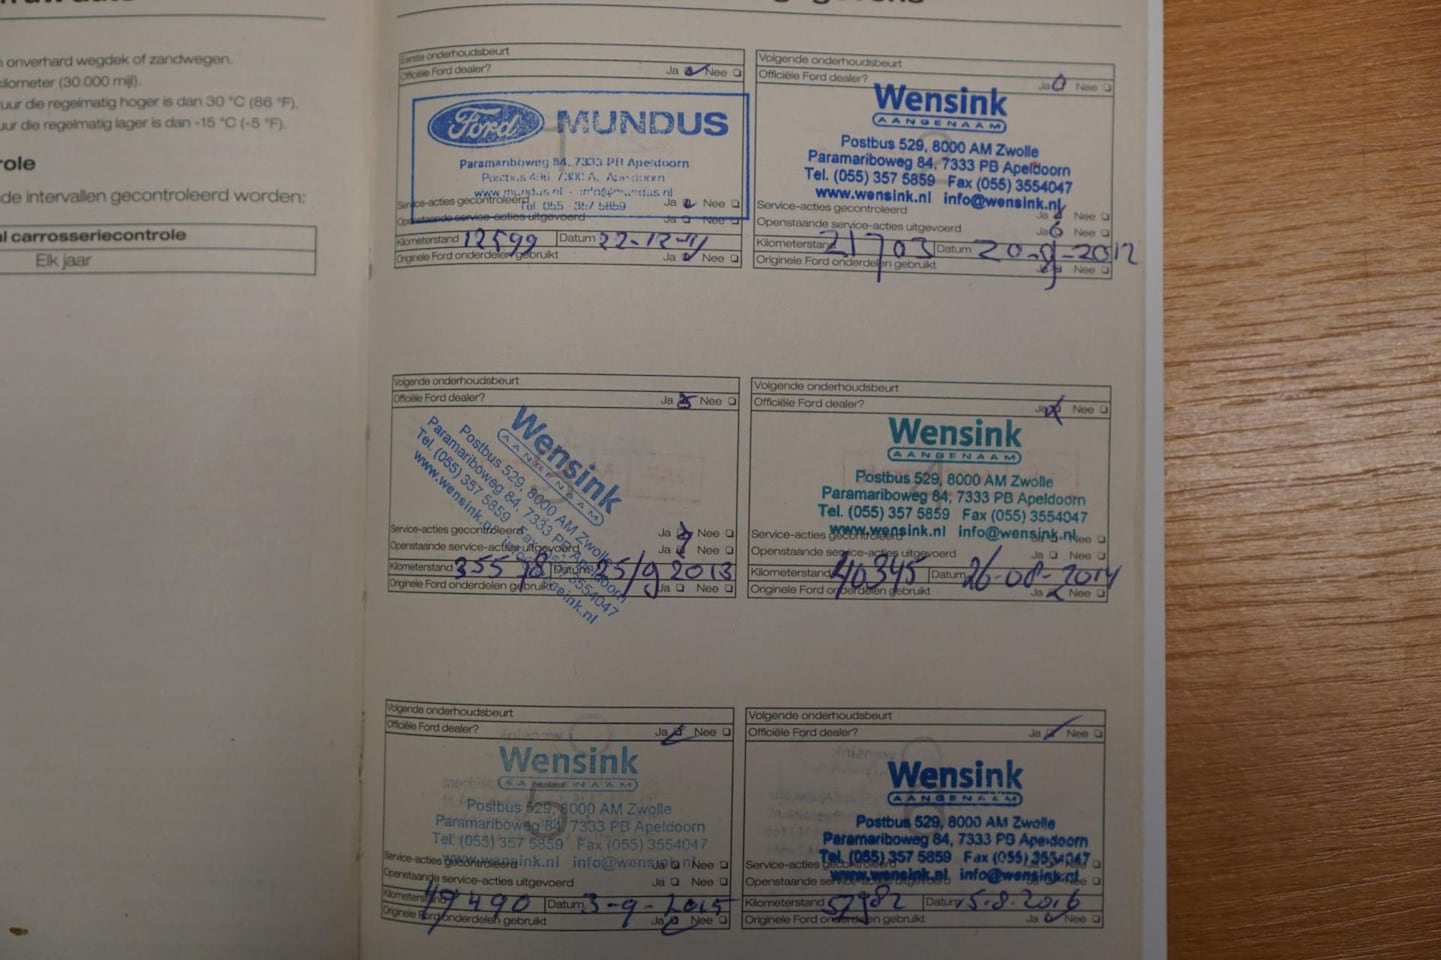 onverhard wegdek of zandwegen.
kilometer (30.000 mijl).
uur die regelmatig hoger is dan 30 °C (86 °F).
uur die regelmatig lager is dan -15 °C (-5 °F).
role
de intervallen gecontroleerd worden:
al carrosseriecontrole
Elk jaar
Eerste onderhoudsbeurt
Officiële Ford dealer? Ja Nee
Ford MUNDUS
Paramariboweg 84, 7333 PB Apeldoorn
www.mundus.nl - info@mundus.nl
Tel. 055 - 357 5859
Service-acties gecontroleerd Ja Nee
Openstaande service-acties uitgevoerd Ja Nee
Kilometerstand 12599 Datum 22-12-11
Originele Ford onderdelen gebruikt Ja Nee
Volgende onderhoudsbeurt
Officiële Ford dealer? Ja Nee
Wensink
AANGENAAM
Postbus 529, 8000 AM Zwolle
Paramariboweg 84, 7333 PB Apeldoorn
Tel. (055) 357 5859 Fax (055) 3554047
www.wensink.nl info@wensink.nl
Service-acties gecontroleerd Ja Nee
Openstaande service-acties uitgevoerd Ja Nee
Kilometerstand 21703 Datum 20-9-2012
Originele Ford onderdelen gebruikt Ja Nee
Volgende onderhoudsbeurt
Officiële Ford dealer? Ja Nee
Wensink
AANGENAAM
Postbus 529, 8000 AM Zwolle
Paramariboweg 84, 7333 PB Apeldoorn
Tel. (055) 357 5859 Fax (055) 3554047
www.wensink.nl info@wensink.nl
Service-acties gecontroleerd Ja Nee
Openstaande service-acties uitgevoerd Ja Nee
Kilometerstand 35578 Datum 25/9 2013
Originele Ford onderdelen gebruikt Ja Nee
Volgende onderhoudsbeurt
Officiële Ford dealer? Ja Nee
Wensink
AANGENAAM
Postbus 529, 8000 AM Zwolle
Paramariboweg 84, 7333 PB Apeldoorn
Tel. (055) 357 5859 Fax (055) 3554047
www.wensink.nl info@wensink.nl
Service-acties gecontroleerd Ja Nee
Openstaande service-acties uitgevoerd Ja Nee
Kilometerstand 40345 Datum 26-08-2014
Originele Ford onderdelen gebruikt Ja Nee
Volgende onderhoudsbeurt
Officiële Ford dealer? Ja Nee
Wensink
AANGENAAM
5
Postbus 529, 8000 AM Zwolle
Paramariboweg 84, 7333 PB Apeldoorn
Tel. (055) 357 5859 Fax (055) 3554047
www.wensink.nl info@wensink.nl
Service-acties gecontroleerd Ja Nee
Openstaande service-acties uitgevoerd Ja Nee
Kilometerstand 49490 Datum 3-9-2015
Originele Ford onderdelen gebruikt Ja Nee
Volgende onderhoudsbeurt
Officiële Ford dealer? Ja Nee
Wensink
AANGENAAM
Postbus 529, 8000 AM Zwolle
Paramariboweg 84, 7333 PB Apeldoorn
Tel. (055) 357 5859 Fax (055) 3554047
www.wensink.nl info@wensink.nl
Service-acties gecontroleerd Ja Nee
Openstaande service-acties uitgevoerd Ja Nee
Kilometerstand 57982 Datum 15-8-2016
Originele Ford onderdelen gebruikt Ja Nee